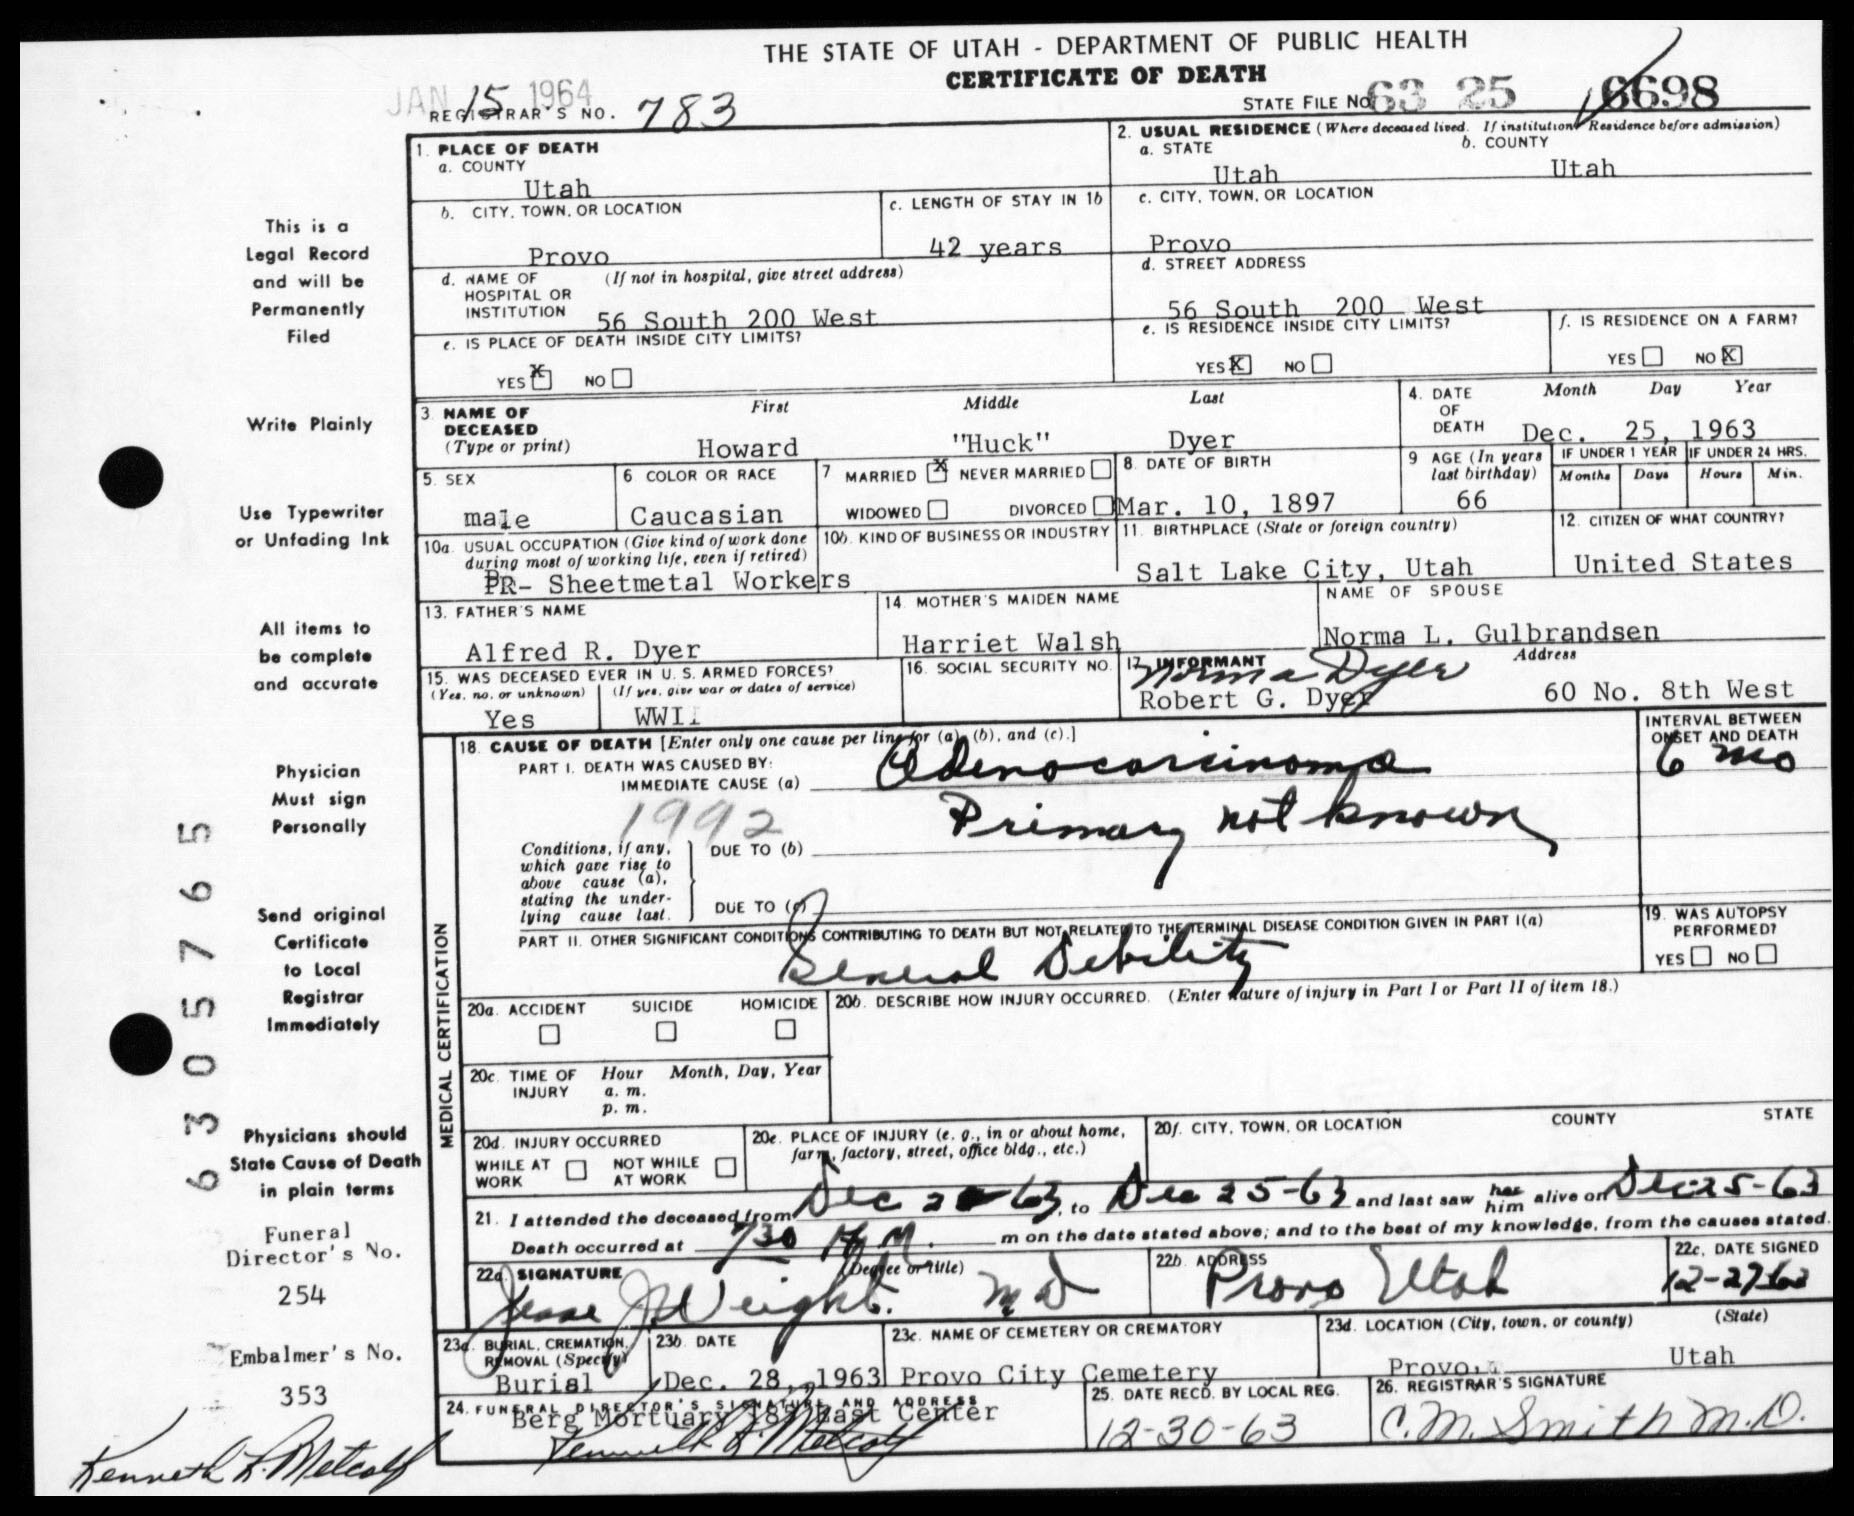 THE STATE OF UTAH - DEPARTMENT OF PUBLIC HEALTH
CERTIFICATE OF DEATH
JAN 15 1964
REGISTRAR'S NO. 783
STATE FILE NO. 63 25 6698
This is a
Legal Record
and will be
Permanently
Filed
Write Plainly
Use Typewriter
or Unfading Ink
All items to
be complete
and accurate
Physician
Must sign
Personally
Send original
Certificate
to Local
Registrar
Immediately
Physicians should
State Cause of Death
in plain terms
Funeral
Director's No.
254
Embalmer's No.
353
Kenneth L. Metcalf
6305765
1. PLACE OF DEATH
a. COUNTY
Utah
b. CITY, TOWN, OR LOCATION
Provo
c. LENGTH OF STAY IN 1b
42 years
d. NAME OF HOSPITAL OR INSTITUTION (If not in hospital, give street address)
56 South 200 West
e. IS PLACE OF DEATH INSIDE CITY LIMITS?
YES X NO
2. USUAL RESIDENCE (Where deceased lived. If institution: Residence before admission)
a. STATE
Utah
b. COUNTY
Utah
c. CITY, TOWN, OR LOCATION
Provo
d. STREET ADDRESS
56 South 200 West
e. IS RESIDENCE INSIDE CITY LIMITS?
YES X NO
f. IS RESIDENCE ON A FARM?
YES NO X
3. NAME OF DECEASED (Type or print)
First Middle Last
Howard "Huck" Dyer
4. DATE OF DEATH Month Day Year
Dec. 25, 1963
5. SEX
male
6 COLOR OR RACE
Caucasian
7 MARRIED X NEVER MARRIED
WIDOWED DIVORCED
8. DATE OF BIRTH
Mar. 10, 1897
9 AGE (In years last birthday)
66
IF UNDER 1 YEAR
Months Days
IF UNDER 24 HRS.
Hours Min.
10a. USUAL OCCUPATION (Give kind of work done during most of working life, even if retired)
PR- Sheetmetal Workers
10b. KIND OF BUSINESS OR INDUSTRY
11. BIRTHPLACE (State or foreign country)
Salt Lake City, Utah
12. CITIZEN OF WHAT COUNTRY?
United States
13. FATHER'S NAME
Alfred R. Dyer
14. MOTHER'S MAIDEN NAME
Harriet Walsh
NAME OF SPOUSE
Norma L. Gulbrandsen
15. WAS DECEASED EVER IN U. S. ARMED FORCES?
(Yes, no, or unknown) (If yes, give war or dates of service)
Yes WWII
16. SOCIAL SECURITY NO.
17. INFORMANT Address
Norma Dyer
Robert G. Dyer 60 No. 8th West
MEDICAL CERTIFICATION
18. CAUSE OF DEATH [Enter only one cause per line for (a), (b), and (c).]
INTERVAL BETWEEN ONSET AND DEATH
PART I. DEATH WAS CAUSED BY:
IMMEDIATE CAUSE (a) Adenocarcinoma
6 mo
1992
Primary not known
Conditions, if any, which gave rise to above cause (a), stating the underlying cause last.
DUE TO (b)
DUE TO (c)
PART II. OTHER SIGNIFICANT CONDITIONS CONTRIBUTING TO DEATH BUT NOT RELATED TO THE TERMINAL DISEASE CONDITION GIVEN IN PART I(a)
General Debility
19. WAS AUTOPSY PERFORMED?
YES NO
20a. ACCIDENT SUICIDE HOMICIDE
20b. DESCRIBE HOW INJURY OCCURRED. (Enter nature of injury in Part I or Part II of item 18.)
20c. TIME OF INJURY Hour Month, Day, Year
a. m.
p. m.
20d. INJURY OCCURRED
WHILE AT WORK NOT WHILE AT WORK
20e. PLACE OF INJURY (e. g., in or about home, farm, factory, street, office bldg., etc.)
20f. CITY, TOWN, OR LOCATION COUNTY STATE
21. I attended the deceased from Dec 63, to Dec 25-63 and last saw her him alive on Dec 25-63
Death occurred at 730 m on the date stated above; and to the best of my knowledge, from the causes stated.
22a. SIGNATURE (Degree or title)
Jesse J Weight. M D
22b. ADDRESS
Provo Utah
22c. DATE SIGNED
12-27-63
23a. BURIAL, CREMATION, REMOVAL (Specify)
Burial
23b. DATE
Dec. 28, 1963
23c. NAME OF CEMETERY OR CREMATORY
Provo City Cemetery
23d. LOCATION (City, town, or county) (State)
Provo, Utah
24. FUNERAL DIRECTOR'S SIGNATURE AND ADDRESS
Berg Mortuary 185 East Center
Kenneth L. Metcalf
25. DATE RECD. BY LOCAL REG.
12-30-63
26. REGISTRAR'S SIGNATURE
C. M. Smith M.D.